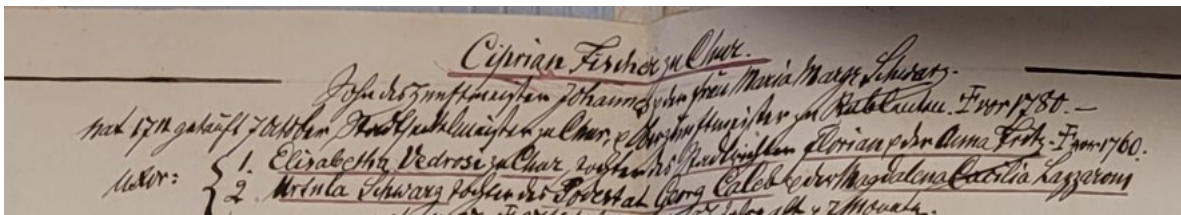 Ciprian Fischer zu Chur.
Sohn des Zunftmeister Johannes & der frau Maria Marg. Schwarz.
nat 17 getauft 7 October, Stadtseckelmeister zu Chur, & Oberzunftmeister zu Rebleuten. † vor 1780. —
uxor: { 1. Elisabetha Vedrosi zu Chur, Tochter des Stadtrichter Florian & der Anna Fritz - † vor 1760.
2. Ursula Schwarz Tochter des Podestat Georg Caleb & der Magdalena Cacilia Lazzaroni
alt 7 Monate.